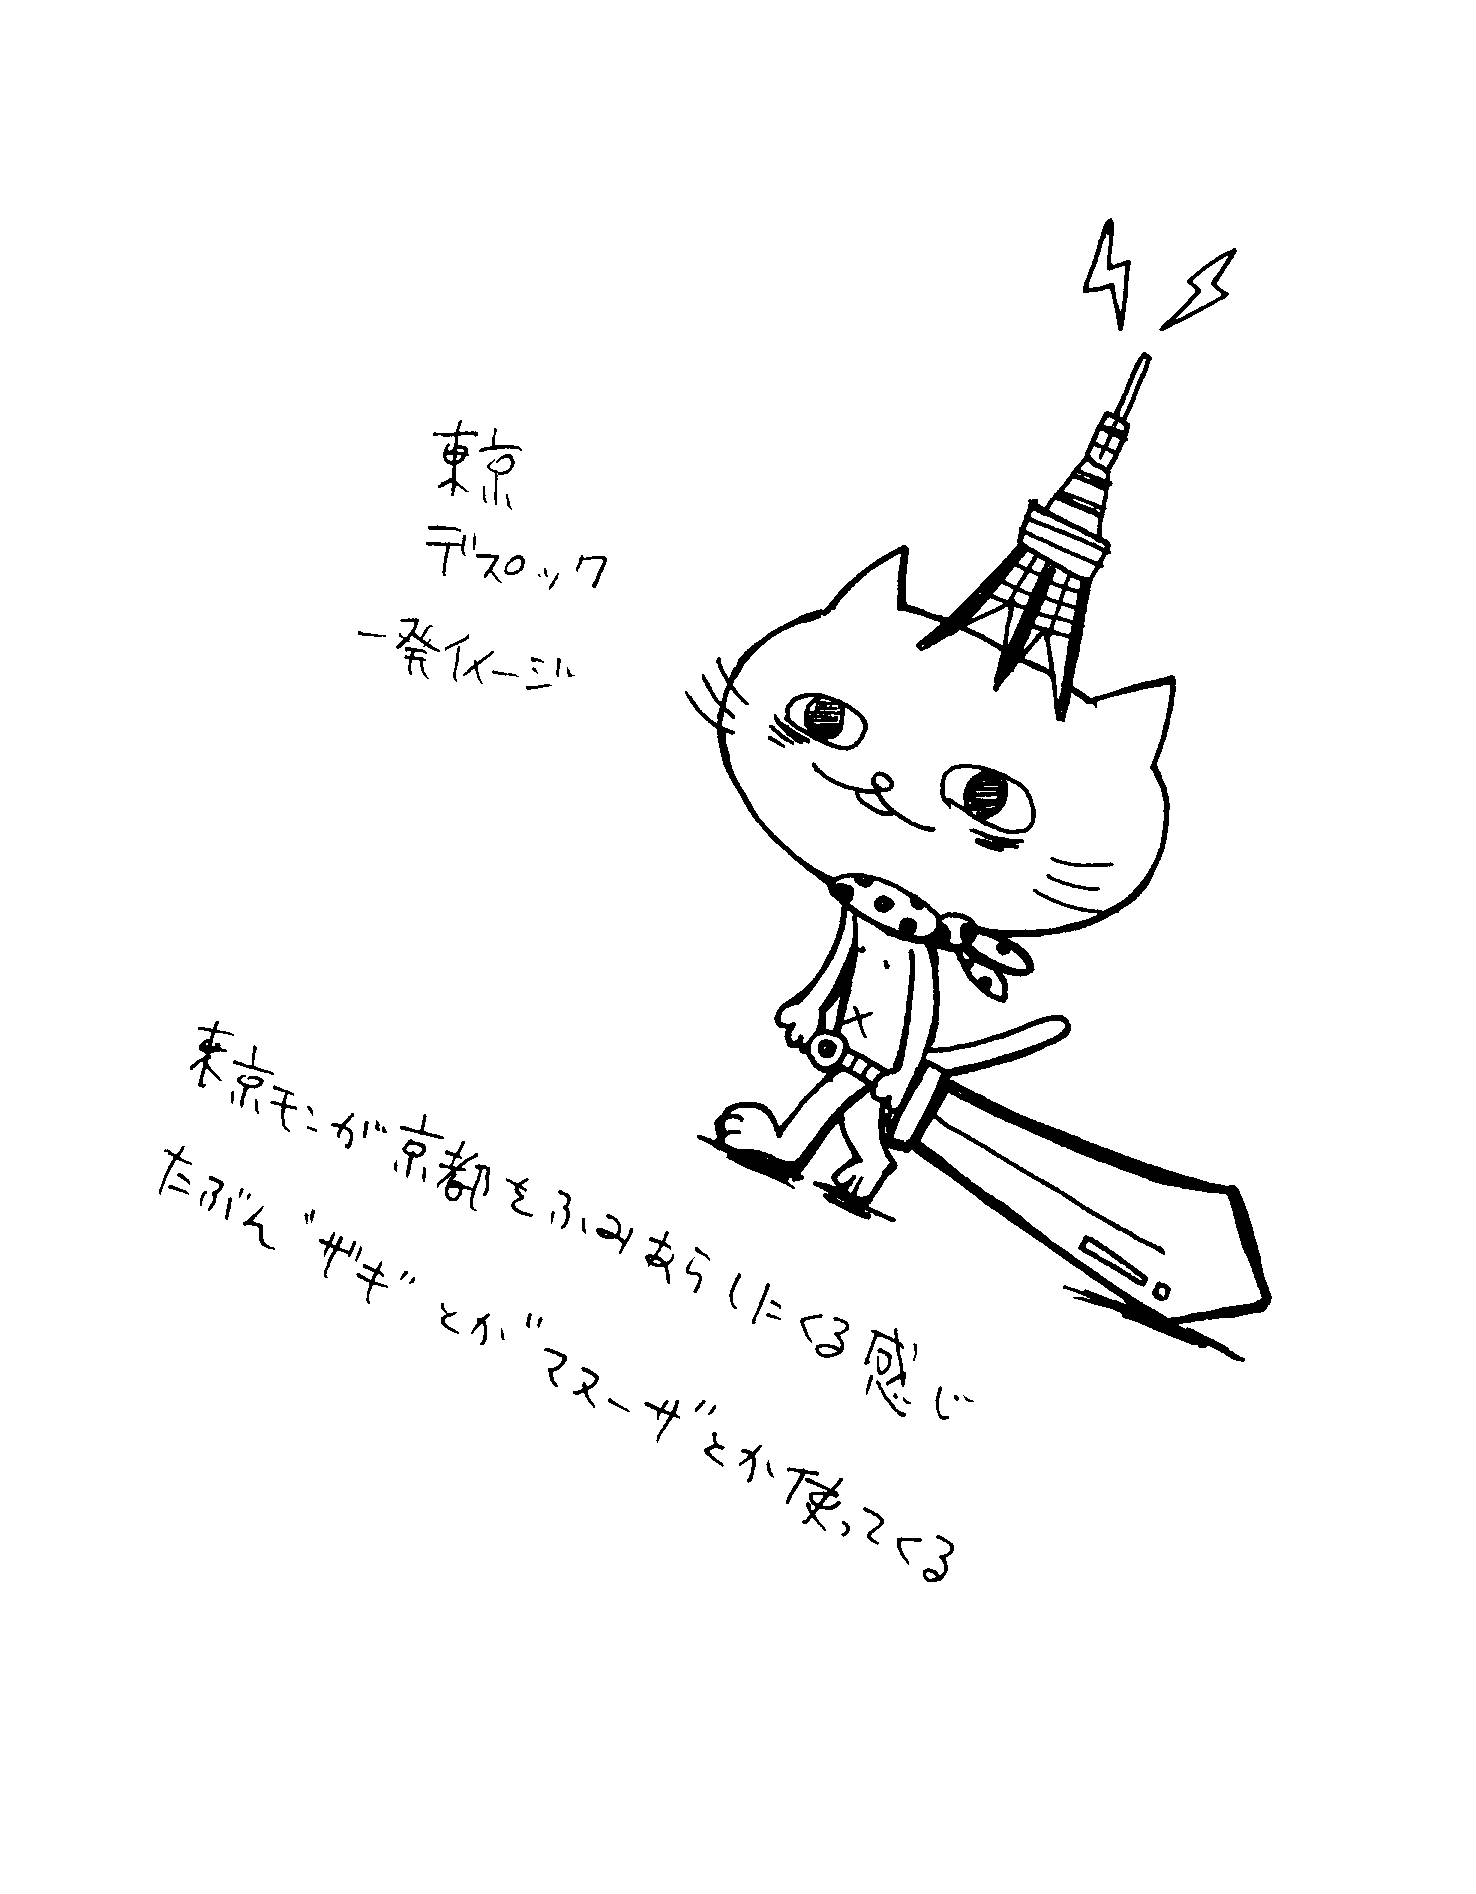 東京
デスロック
一発イメージ
東京モンが京都をふみあらしたくる感じ
たぶん"ザギ"とか"マヌーザ"とか使ってくる